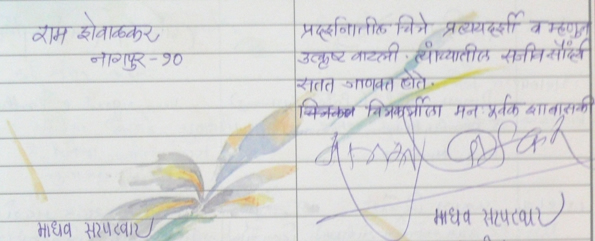 राम शेवाळकर
नागपुर-१०
प्रदर्शनातील चित्रे प्रत्ययदर्शी व म्हणून
उत्कृष्ट वाटली. त्यांच्यातील सजीव सौंदर्य
सतत जाणवत होते.
चित्रकर्तीला मनःपूर्वक शाबासकी
माधव सरपटवार
माधव सरपटवार